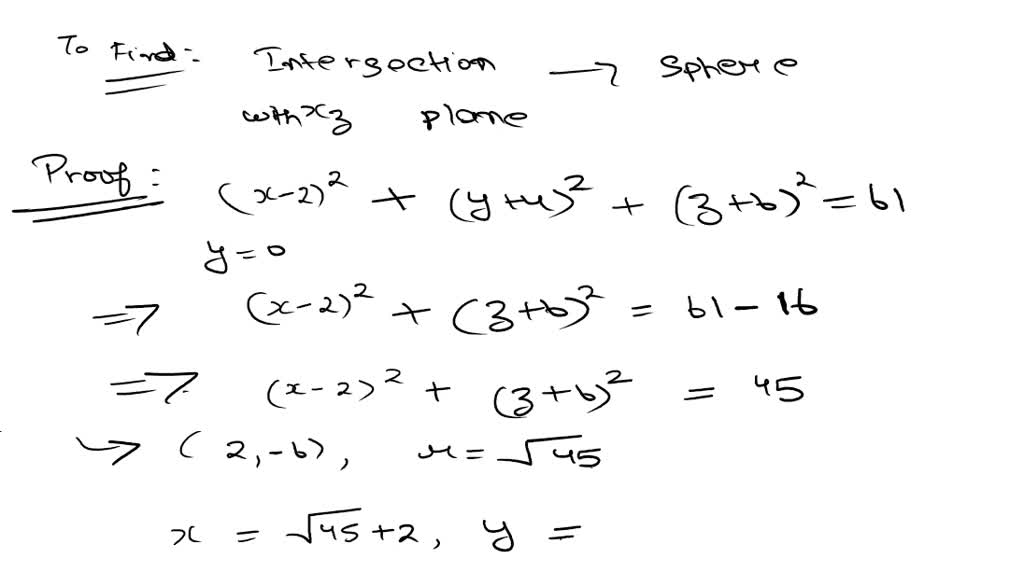 To Find: Intersection → Sphere
with xz plane
Proof: (x-2)² + (y+4)² + (z+6)² = 61
y=0
⇒ (x-2)² + (z+6)² = 61-16
⇒ (x-2)² + (z+6)² = 45
↪ (2,-6), r = √45
x = √45+2, y =